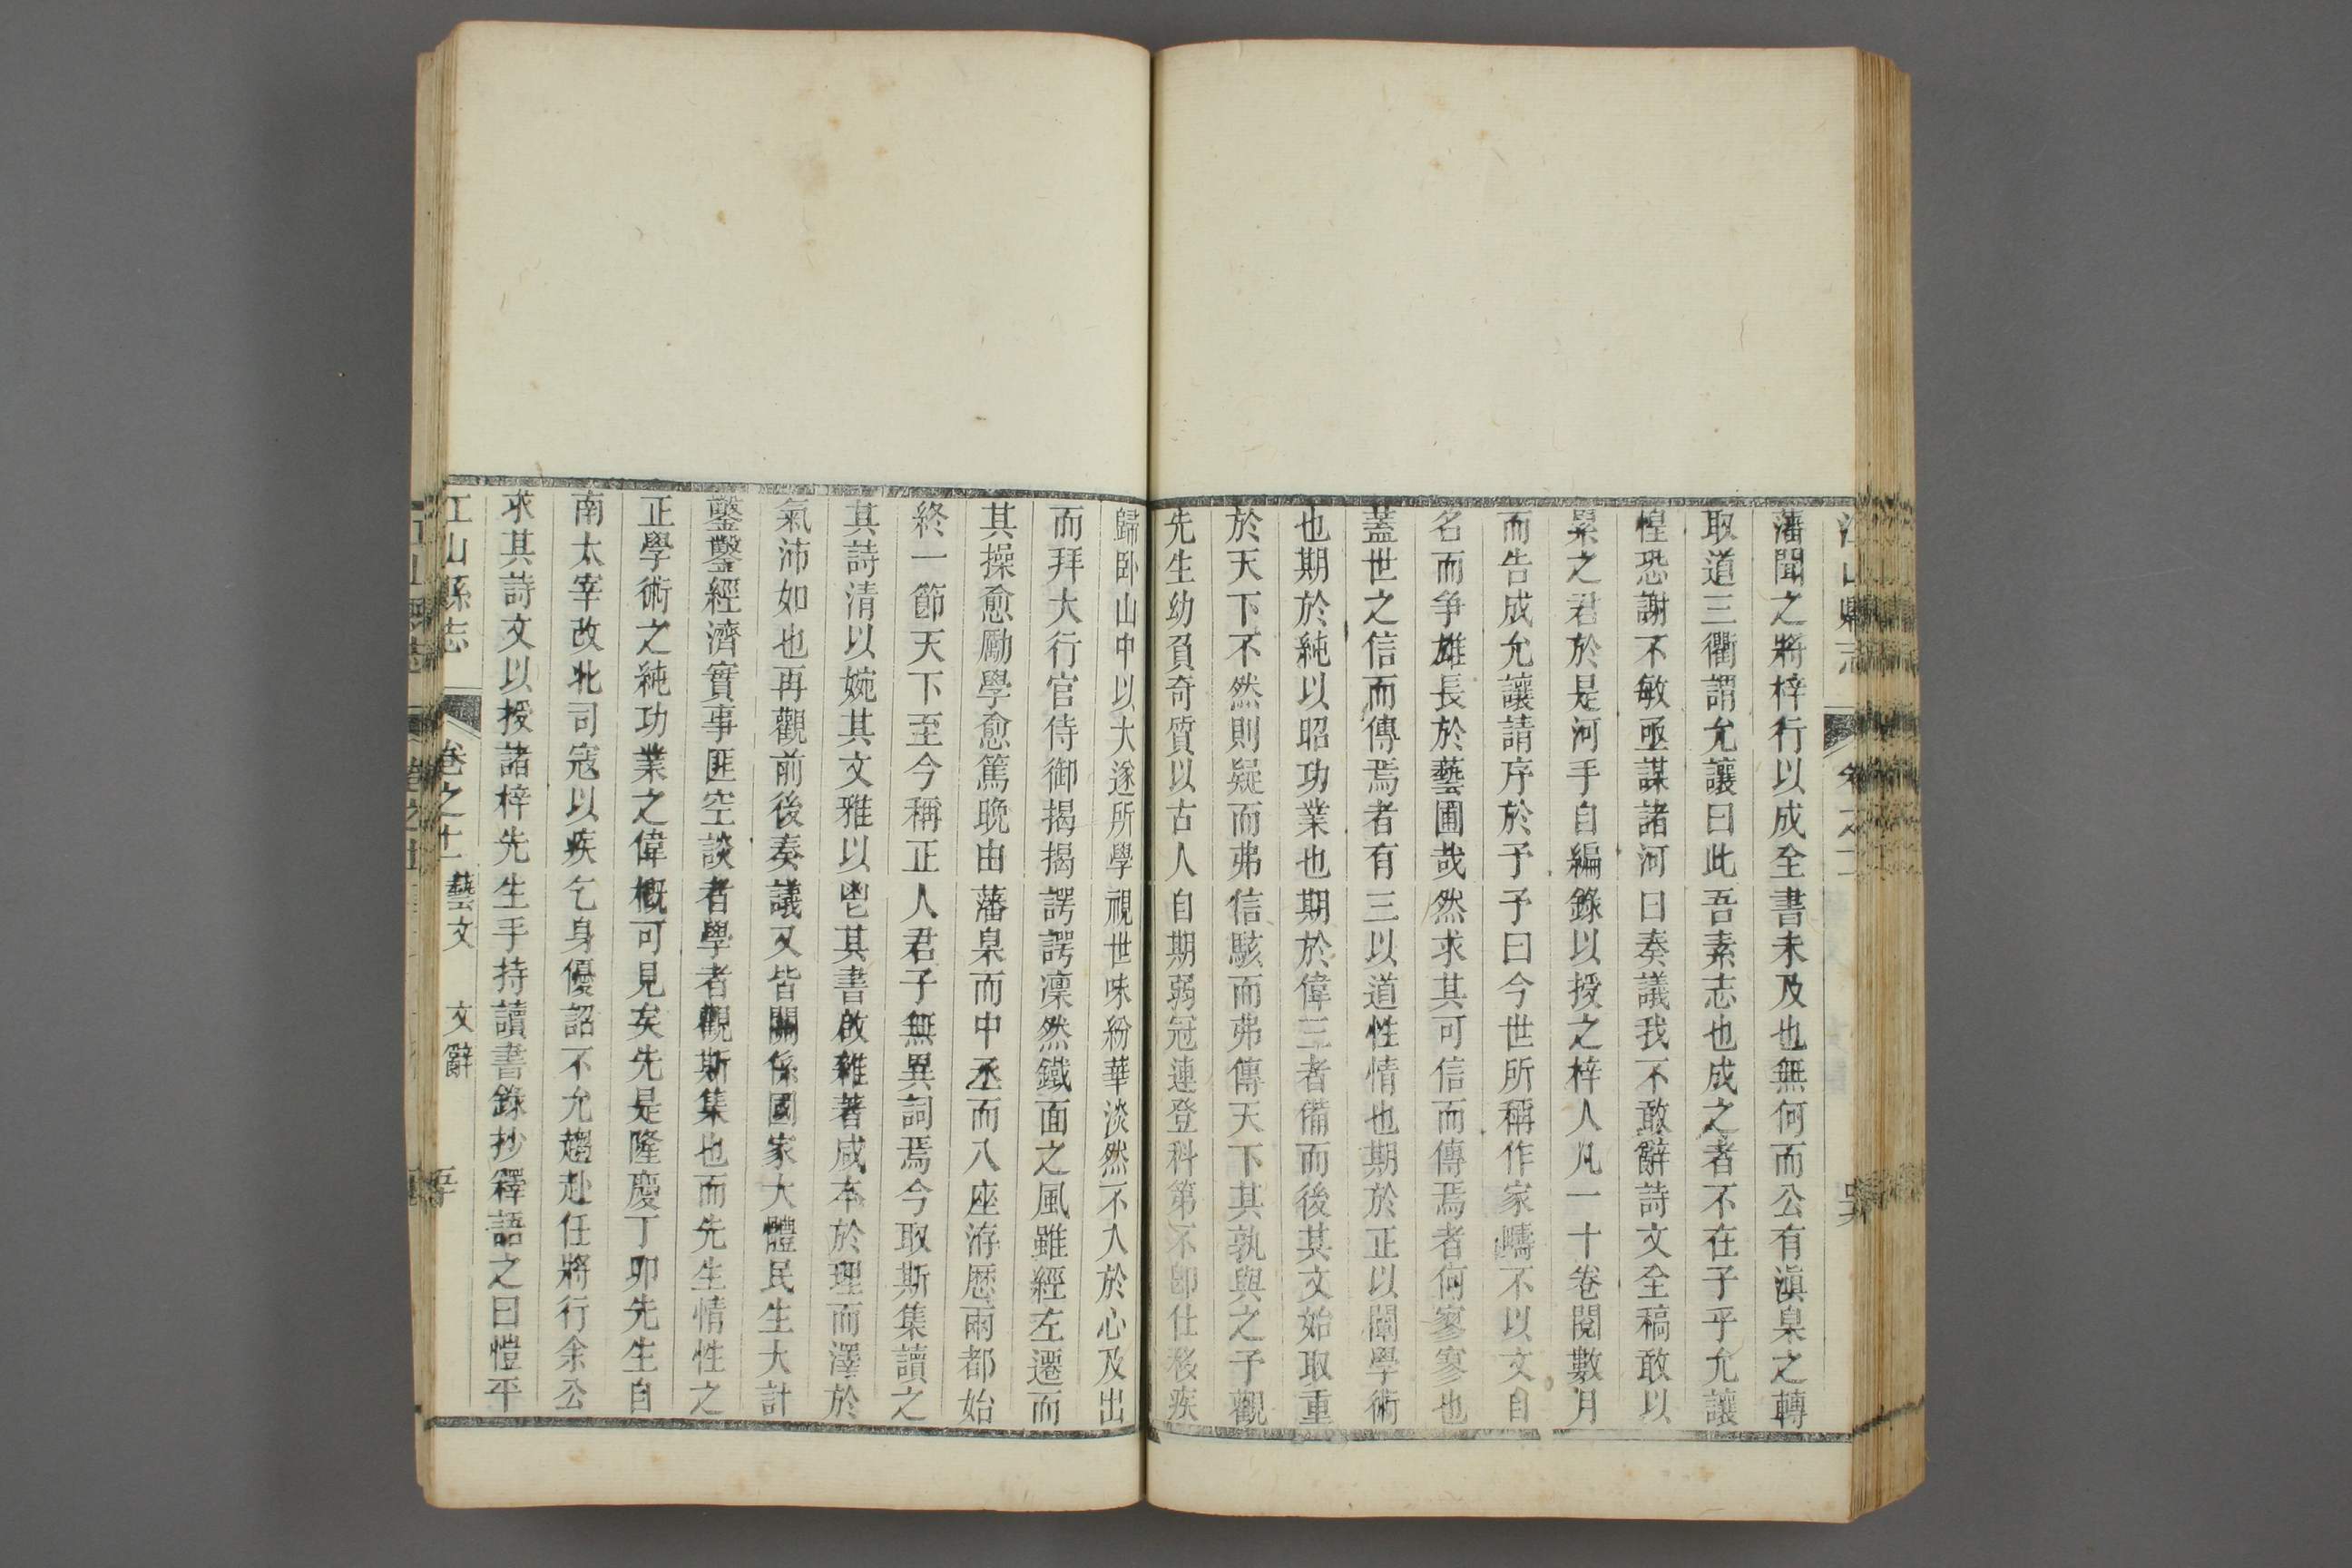 藩聞之將梓行以成全書未及也無何而公有滇臬之轉
取道三衢謂允讓曰此吾素志也成之者不在子乎允讓
惶恐謝不敏亟謀諸河曰奏議我不敢辭詩文全稿敢以
累之君於是河手自編錄以授之梓人凡一十卷閱數月
而告成允讓請序於予予曰今世所稱作家疇不以文自
名而爭雄長於藝圃哉然求其可信而傳焉者何寥寥也
蓋世之信而傳焉者有三以道性情也期於正以闡學術
也期於純以昭功業也期於偉三者備而後其文始取重
於天下不然則疑而弗信駭而弗傳天下其孰與之予觀
先生幼負奇質以古人自期弱冠連登科第不卽仕移疾
歸臥山中以大遂所學視世味紛華淡然不入於心及出
而拜大行官侍御揭揭諤諤凜然鐵面之風雖經左遷而
其操愈勵學愈篤晚由藩臬而中丞而八座洊歷兩都始
終一節天下至今稱正人君子無異詞焉今取斯集讀之
其詩清以婉其文雅以鬯其書啟雜著咸本於理而澤於
氣沛如也再觀前後奏議又皆關係國家大體民生大計
鑿鑿經濟實事匪空談者學者觀斯集也而先生情性之
正學術之純功業之偉槪可見矣先是隆慶丁卯先生自
南太宰改北司寇以疾乞身優詔不允趨赴任將行余公
求其詩文以授諸梓先生手持讀書錄抄釋語之曰愷平
江山縣志 卷之十一 藝文 文辭